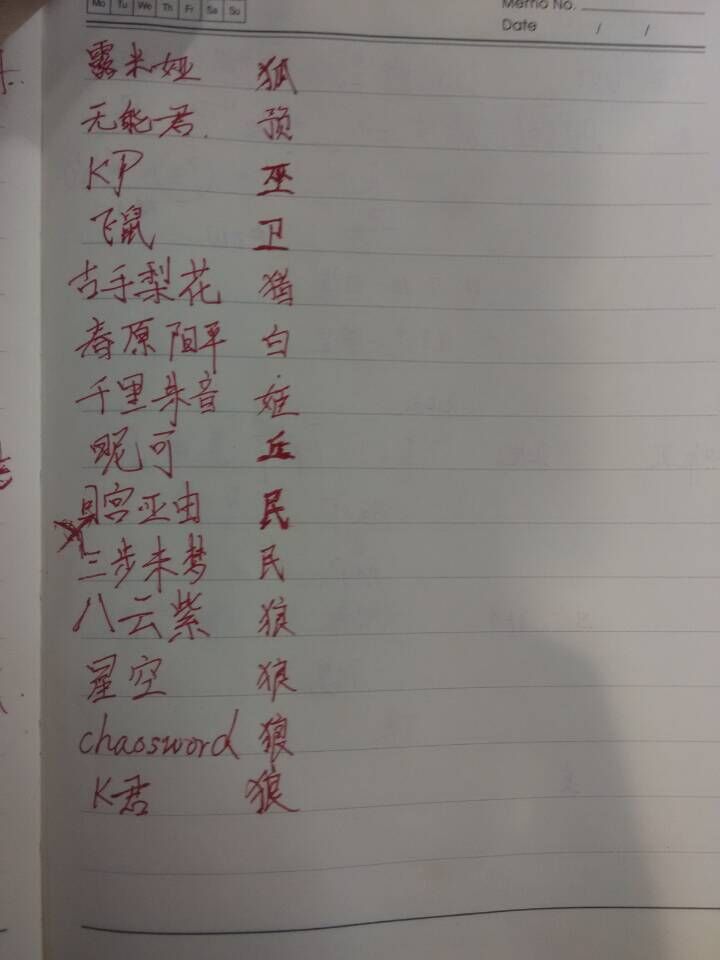 Mo Tu We Th Fr Sa Su
Memo No.
Date / /
露米娅 狐
无能君. 预
KP 巫
飞鼠 卫
古手梨花 猎
春原阳平 白
千里朱音 姬
昵可 丘
宫亚由 民
三步未梦 民
八云紫 狼
星空 狼
chaossword 狼
K君 狼